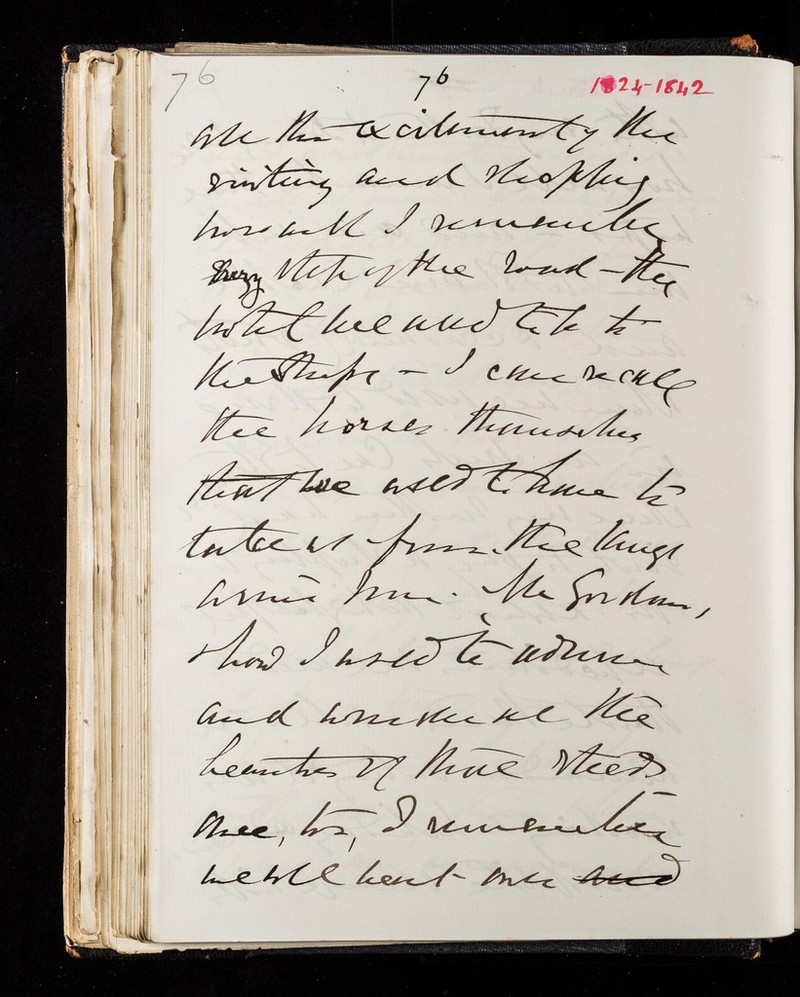 76 76 1824-1842
all the excitement of the
visiting and shopping
how well I remember
every step of the road - the
hotel we used to to
the Shops - I can recall
the horses themselves
that we used to have to
take us from the Kings
arms Inn. Mr Gordons,
& how I used to admire
and the
beauties of those steeds
once, too, I remember
we all went over and